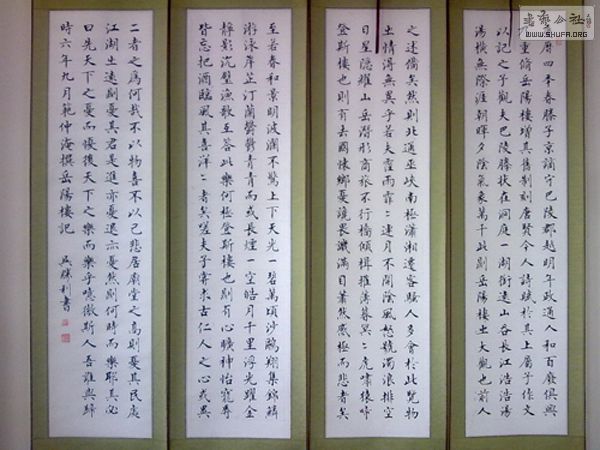 書法公社
WWW.SHUFA.ORG
曆四年春滕子京謫守巴陵郡越明年政通人和百廢俱興
重脩岳陽樓增其舊制刻唐賢今人詩賦於其上屬予作文
以記之予觀夫巴陵勝狀在洞庭一湖銜遠山吞長江浩浩湯
湯橫無際涯朝暉夕陰氣象萬千此則岳陽樓之大觀也前人
之述備矣然則北通巫峽南極瀟湘遷客騷人多會於此覽物
之情得無異乎若夫霪雨霏〻連月不開陰風怒號濁浪排空
日星隱耀山岳潛形商旅不行檣傾楫摧薄暮冥〻虎嘯猿啼
登斯樓也則有去國懷鄉憂讒畏譏滿目蕭然感極而悲者矣
至若春和景明波瀾不驚上下天光一碧萬頃沙鷗翔集錦鱗
游泳岸芷汀蘭鬱鬱青青而或長煙一空皓月千里浮光躍金
靜影沉璧漁歌互答此樂何極登斯樓也則有心曠神怡寵辱
皆忘把酒臨風其喜洋〻者矣嗟夫予嘗求古仁人之心或異
二者之為何哉不以物喜不以己悲居廟堂之高則憂其民處
江湖之遠則憂其君是進亦憂退亦憂然則何時而樂耶其必
曰先天下之憂而憂後天下之樂而樂乎噫微斯人吾誰與歸
時六年九月範仲淹撰岳陽樓記 吳勝利書